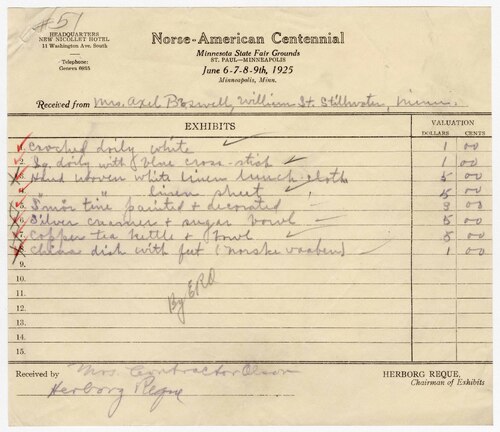 #51
HEADQUARTERS
NEW NICOLLET HOTEL
11 Washington Ave. South
Telephone:
Geneva 6625
Norse-American Centennial
Minnesota State Fair Grounds
ST. PAUL—MINNEAPOLIS
June 6-7-8-9th, 1925
Minneapolis, Minn.
Received from Mrs. Axel Boswell, William St. Stillwater, Minn.
EXHIBITS
VALUATION
DOLLARS CENTS
1. Croched doily white 1 00
2. Sq. doily with blue cross-stich 1 00
3. Hand woven white linen lunch cloth 5 00
4. " " linen sheet 5 00
5. tine painted & decorated 3 00
6. Silver creamer & sugar bowl 5 00
7. Copper tea kettle & bowl 5 00
8. China dish with feet (norske waaben) 1 00
9.
10.
11.
12.
13.
14.
15.
By ERO
Received by Mrs. Contractor Olson
Herborg Reque
HERBORG REQUE,
Chairman of Exhibits